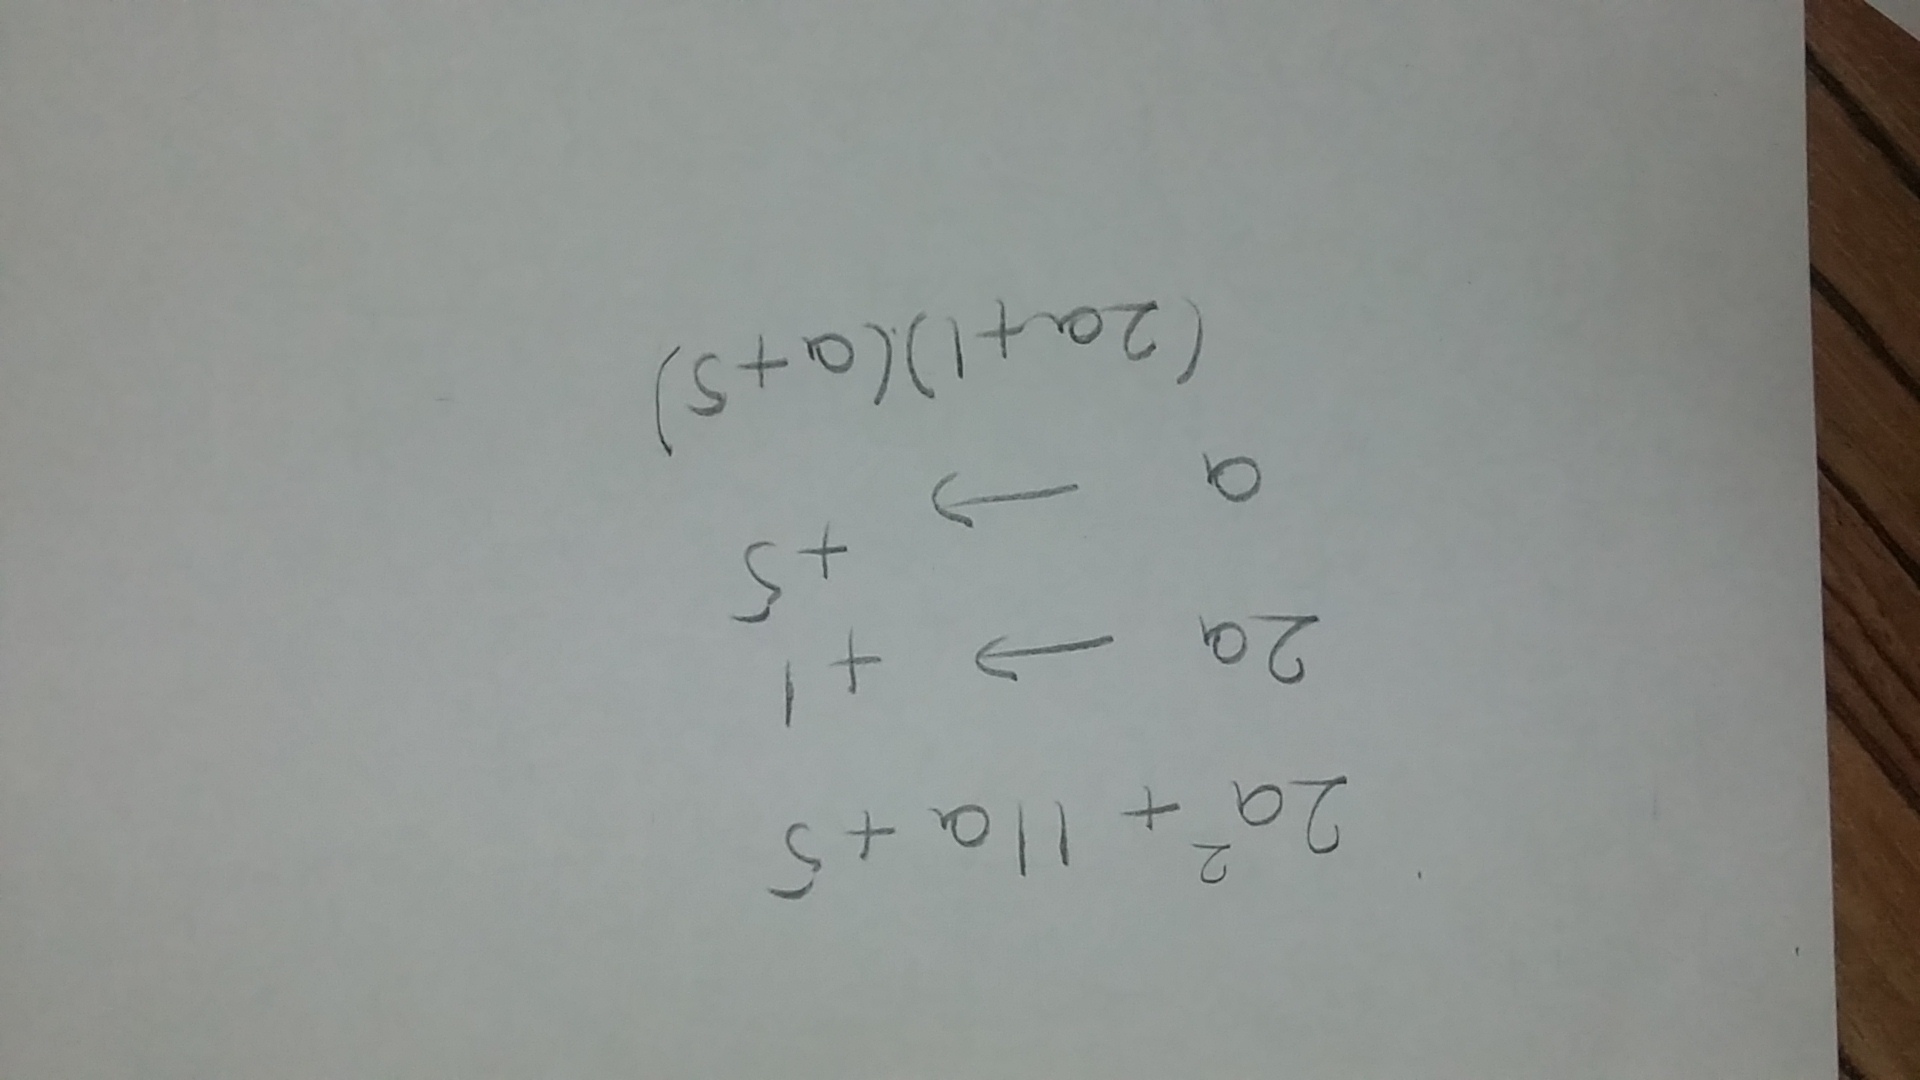 2a² + 11a + 5
2a → +1
a → +5
(2a+1).(a+5)